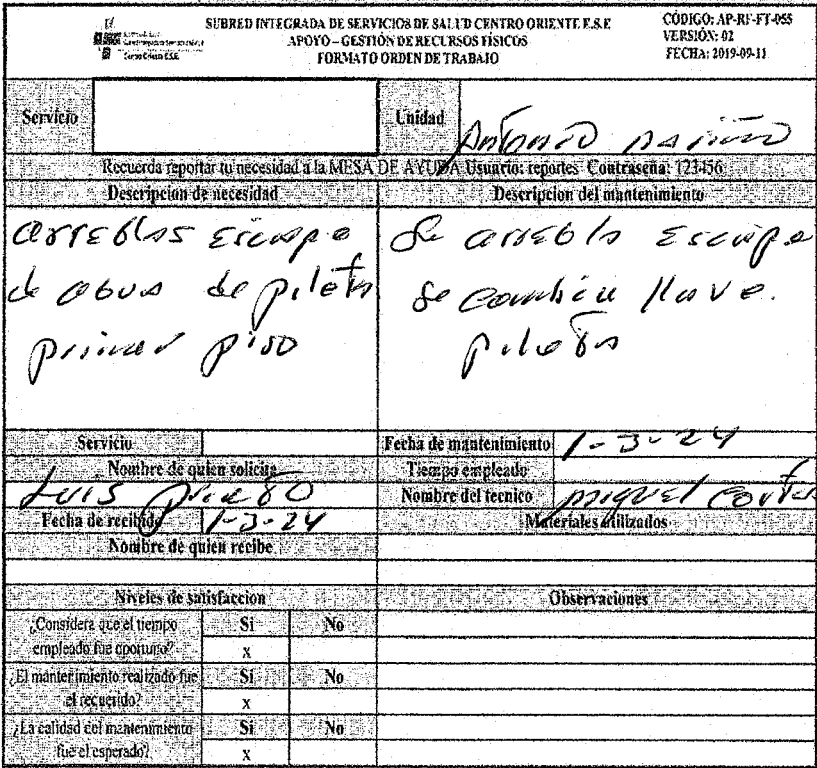 SUBRED INTEGRADA DE SERVICIOS DE SALUD CENTRO ORIENTE E.S.E
APOYO – GESTIÓN DE RECURSOS FÍSICOS
FORMATO ORDEN DE TRABAJO
CÓDIGO: AP-RF-FT-055
VERSIÓN: 02
FECHA: 2019-09-11
Servicio
Unidad
Antonio nariño
Recuerda reportar tu necesidad a la MESA DE AYUDA Usuario: reportes Contraseña: 123456
Descripcion de necesidad
Descripcion del mantenimiento
arreglas escape
de agua de pileta
primer piso
Se arregla escape
se cambia llave
pileta
Servicio
Fecha de mantenimiento 1-3-24
Nombre de quien solicita
Tiempo empleado
Luis prieto
Nombre del tecnico miguel
Fecha de recibido 1-3-24
Materiales utilizados
Nombre de quien recibe
Niveles de satisfaccion
Observaciones
¿Considera que el tiempo
empleado fue oportuno?
Si No
x
¿El mantenimiento realizado fue
el requerido?
Si No
x
¿La calidad del mantenimiento
fue el esperado?
Si No
x